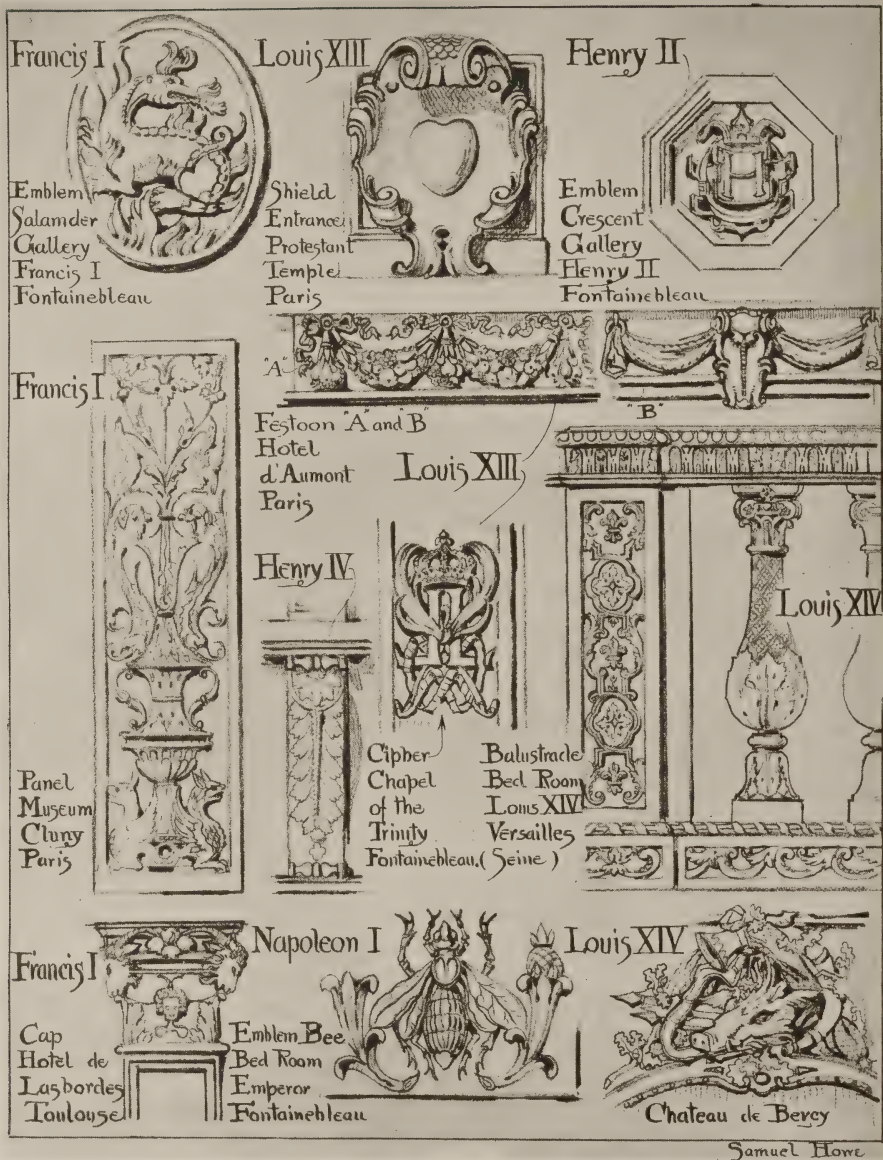 Francis I
Emblem
Salamder
Gallery
Francis I
Fontainebleau
Louis XIII
Shield
Entrance
Protestant
Temple
Paris
Henry II
Emblem
Crescent
Gallery
Henry II
Fontainebleau
Francis I
Panel
Museum
Cluny
Paris
"A"
"B"
Festoon "A" and "B"
Hotel
d'Aumont
Paris
Louis XIII
Henry IV
Cipher
Chapel
of the
Trinity
Fontainebleau. (Seine)
Louis XIV
Balustrade
Bed Room
Louis XIV
Versailles
Francis I
Cap
Hotel de
Lasbordes
Toulouse
Napoleon I
Emblem Bee
Bed Room
Emperor
Fontainebleau
Louis XIV
Chateau de Bercy
Samuel Howe